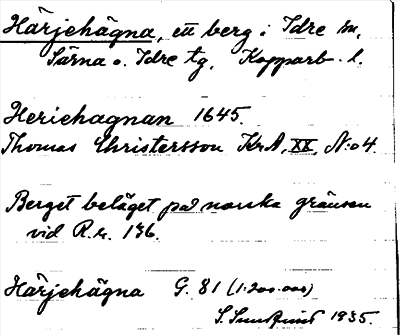 Härjehägna, ett berg i Idre sn,
Särna o. Idre tg, Kopparb. l.
Heriehagnan 1645.
Thomas Christersson Kr.A, XX, N:o 4.
Berget beläget på norska gränsen
vid R.r. 136.
Härjehägna G. 81 (1:200.000)
S. Sundqvist 1935.